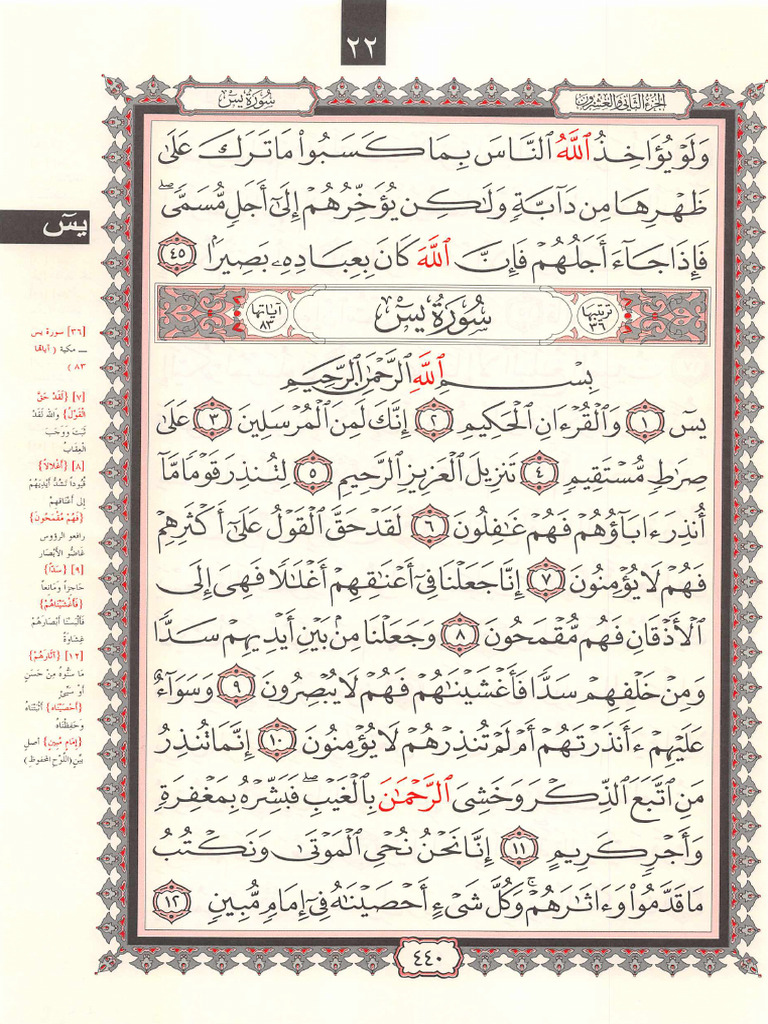 ٢٢
الجزء الثاني والعشرون
سُورَةُ يسٓ
وَلَوۡ يُؤَاخِذُ ٱللَّهُ ٱلنَّاسَ بِمَا كَسَبُواْ مَا تَرَكَ عَلَىٰ
ظَهۡرِهَا مِن دَآبَّةٖ وَلَٰكِن يُؤَخِّرُهُمۡ إِلَىٰٓ أَجَلٖ مُّسَمّٗىۖ
فَإِذَا جَآءَ أَجَلُهُمۡ فَإِنَّ ٱللَّهَ كَانَ بِعِبَادِهِۦ بَصِيرَۢا ٤٥
ترتيبها ٣٦
سُورَةُ يسٓ
آياتها ٨٣
بِسۡمِ ٱللَّهِ ٱلرَّحۡمَٰنِ ٱلرَّحِيمِ
يسٓ ١ وَٱلۡقُرۡءَانِ ٱلۡحَكِيمِ ٢ إِنَّكَ لَمِنَ ٱلۡمُرۡسَلِينَ ٣ عَلَىٰ
صِرَٰطٖ مُّسۡتَقِيمٖ ٤ تَنزِيلَ ٱلۡعَزِيزِ ٱلرَّحِيمِ ٥ لِتُنذِرَ قَوۡمٗا مَّآ
أُنذِرَ ءَابَآؤُهُمۡ فَهُمۡ غَٰفِلُونَ ٦ لَقَدۡ حَقَّ ٱلۡقَوۡلُ عَلَىٰٓ أَكۡثَرِهِمۡ
فَهُمۡ لَا يُؤۡمِنُونَ ٧ إِنَّا جَعَلۡنَا فِيٓ أَعۡنَٰقِهِمۡ أَغۡلَٰلٗا فَهِيَ إِلَى
ٱلۡأَذۡقَانِ فَهُم مُّقۡمَحُونَ ٨ وَجَعَلۡنَا مِنۢ بَيۡنِ أَيۡدِيهِمۡ سَدّٗا
وَمِنۡ خَلۡفِهِمۡ سَدّٗا فَأَغۡشَيۡنَٰهُمۡ فَهُمۡ لَا يُبۡصِرُونَ ٩ وَسَوَآءٌ
عَلَيۡهِمۡ ءَأَنذَرۡتَهُمۡ أَمۡ لَمۡ تُنذِرۡهُمۡ لَا يُؤۡمِنُونَ ١٠ إِنَّمَا تُنذِرُ
مَنِ ٱتَّبَعَ ٱلذِّكۡرَ وَخَشِيَ ٱلرَّحۡمَٰنَ بِٱلۡغَيۡبِۖ فَبَشِّرۡهُ بِمَغۡفِرَةٖ
وَأَجۡرٖ كَرِيمٍ ١١ إِنَّا نَحۡنُ نُحۡيِ ٱلۡمَوۡتَىٰ وَنَكۡتُبُ
مَا قَدَّمُواْ وَءَاثَٰرَهُمۡۚ وَكُلَّ شَيۡءٍ أَحۡصَيۡنَٰهُ فِيٓ إِمَامٖ مُّبِينٖ ١٢
٤٤٠
يسٓ
[٣٦] سورة يس
ــ مكية ( آياتها
٨٣ )
[٧] {لَقَدْ حَقَّ
الْقَوْلُ} وَاللهِ لَقَدْ
ثَبَتَ وَوَجَبَ
العِقَابُ
[٨] {أَغْلالاً}
قُيُوداً تَشُدُّ أَيْدِيَهُمْ
إِلَى أَعْنَاقِهِمْ
{فَهُمْ مُقْمَحُونَ}
رافعو الرؤوس
غَاضُّو الأَبْصَارِ
[٩] {سَدًّا}
حَاجِزاً وَمَانِعاً
{فَأَغْشَيْنَاهُمْ}
فَأَلْبَسْنَا أَبْصَارَهُمْ
غِشَاوَةً
[١٢] {آثَارَهُمْ}
مَا سَنُّوهُ مِنْ حَسَنٍ
أَوْ سَيِّئٍ
{أَحْصَيْنَاهُ} أَثْبَتْنَاهُ
وَحَفِظْنَاهُ
{إِمَامٍ مُبِينٍ} أصلٍ
بَيِّنٍ(اللَّوْحِ المَحفوظِ)